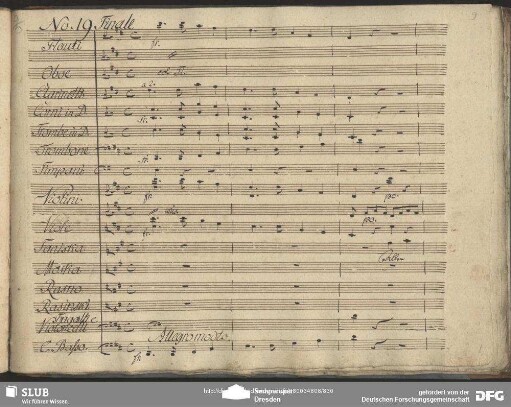 No. 19 Finale
Flauti
Oboe
Clarinetti
Corni in D
Trombe in D
Trombone
Timpani
Violini
Viole
Faniska
Moska
Rasno
Violoncelli
C. Basso.
Allegro modto.
SLUB
Wir führen Wissen.
Dresden
gefördert von der
Deutschen Forschungsgemeinschaft
DFG